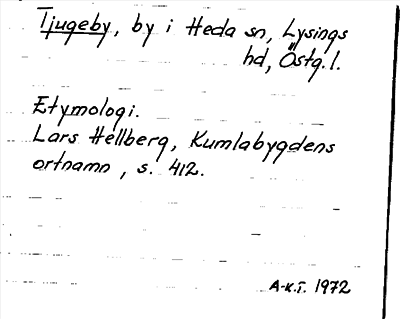 Tjugeby, by i Heda sn, Lysings
hd, Östg.l.
Etymologi.
Lars Hellberg, Kumlabygdens
ortnamn, s. 412.
A-K.T. 1972